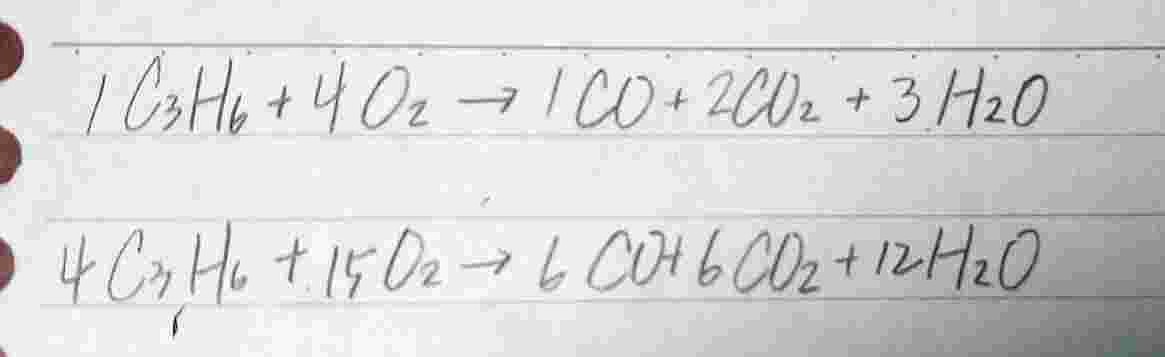 1C₃H₆ + 4O₂ → 1CO + 2CO₂ + 3H₂O
4C₃H₆ + 15O₂ → 6CO + 6CO₂ + 12H₂O